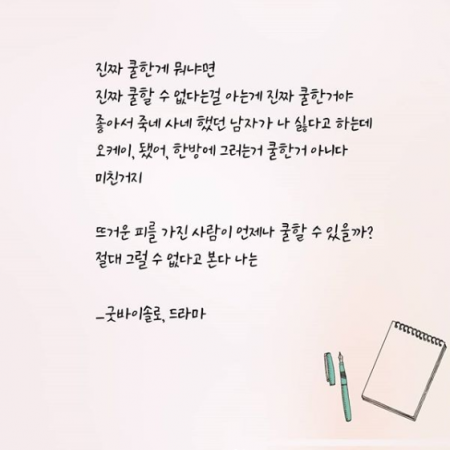 진짜 쿨한게 뭐냐면
진짜 쿨할 수 없다는걸 아는게 진짜 쿨한거야
좋아서 죽네 사네 했던 남자가 나 싫다고 하는데
오케이, 됐어, 한방에 그러는거 쿨한거 아니다
미친거지
뜨거운 피를 가진 사람이 언제나 쿨할 수 있을까?
절대 그럴 수 없다고 본다 나는
_굿바이솔로, 드라마